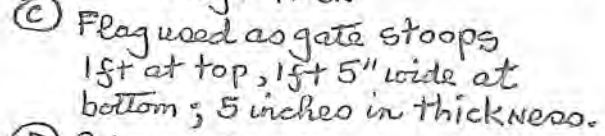 (C) Flag used as gate stoops
1ft at top, 1ft 5" wide at
bottom; 5 inches in thickness.